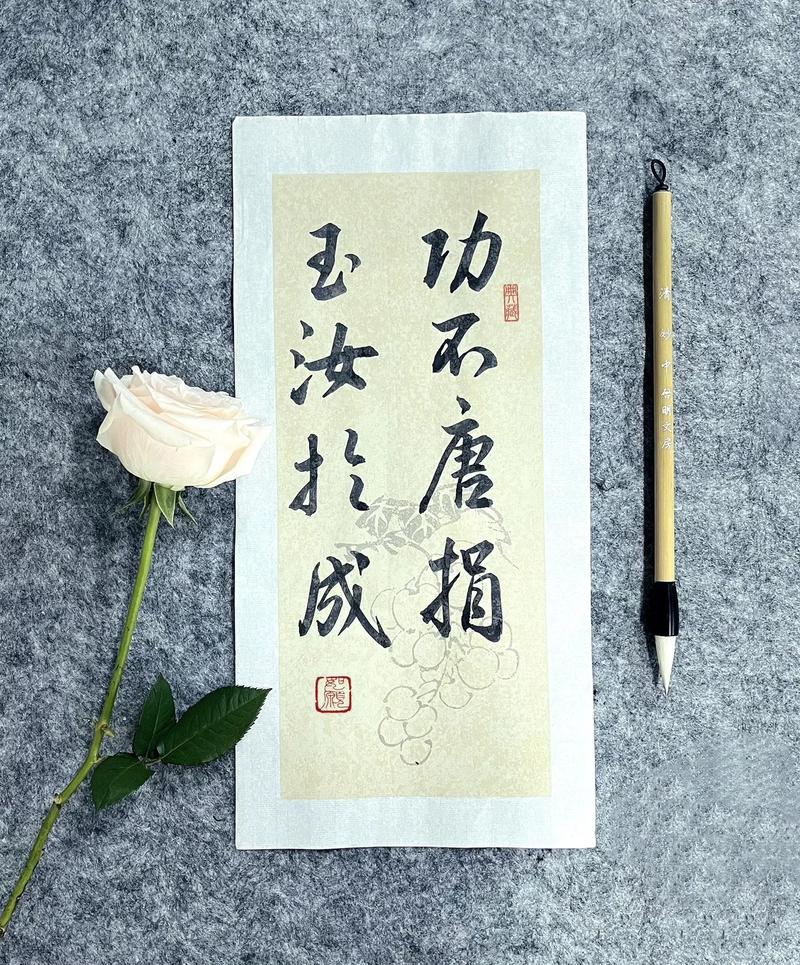 功不唐捐
玉汝於成
典藏